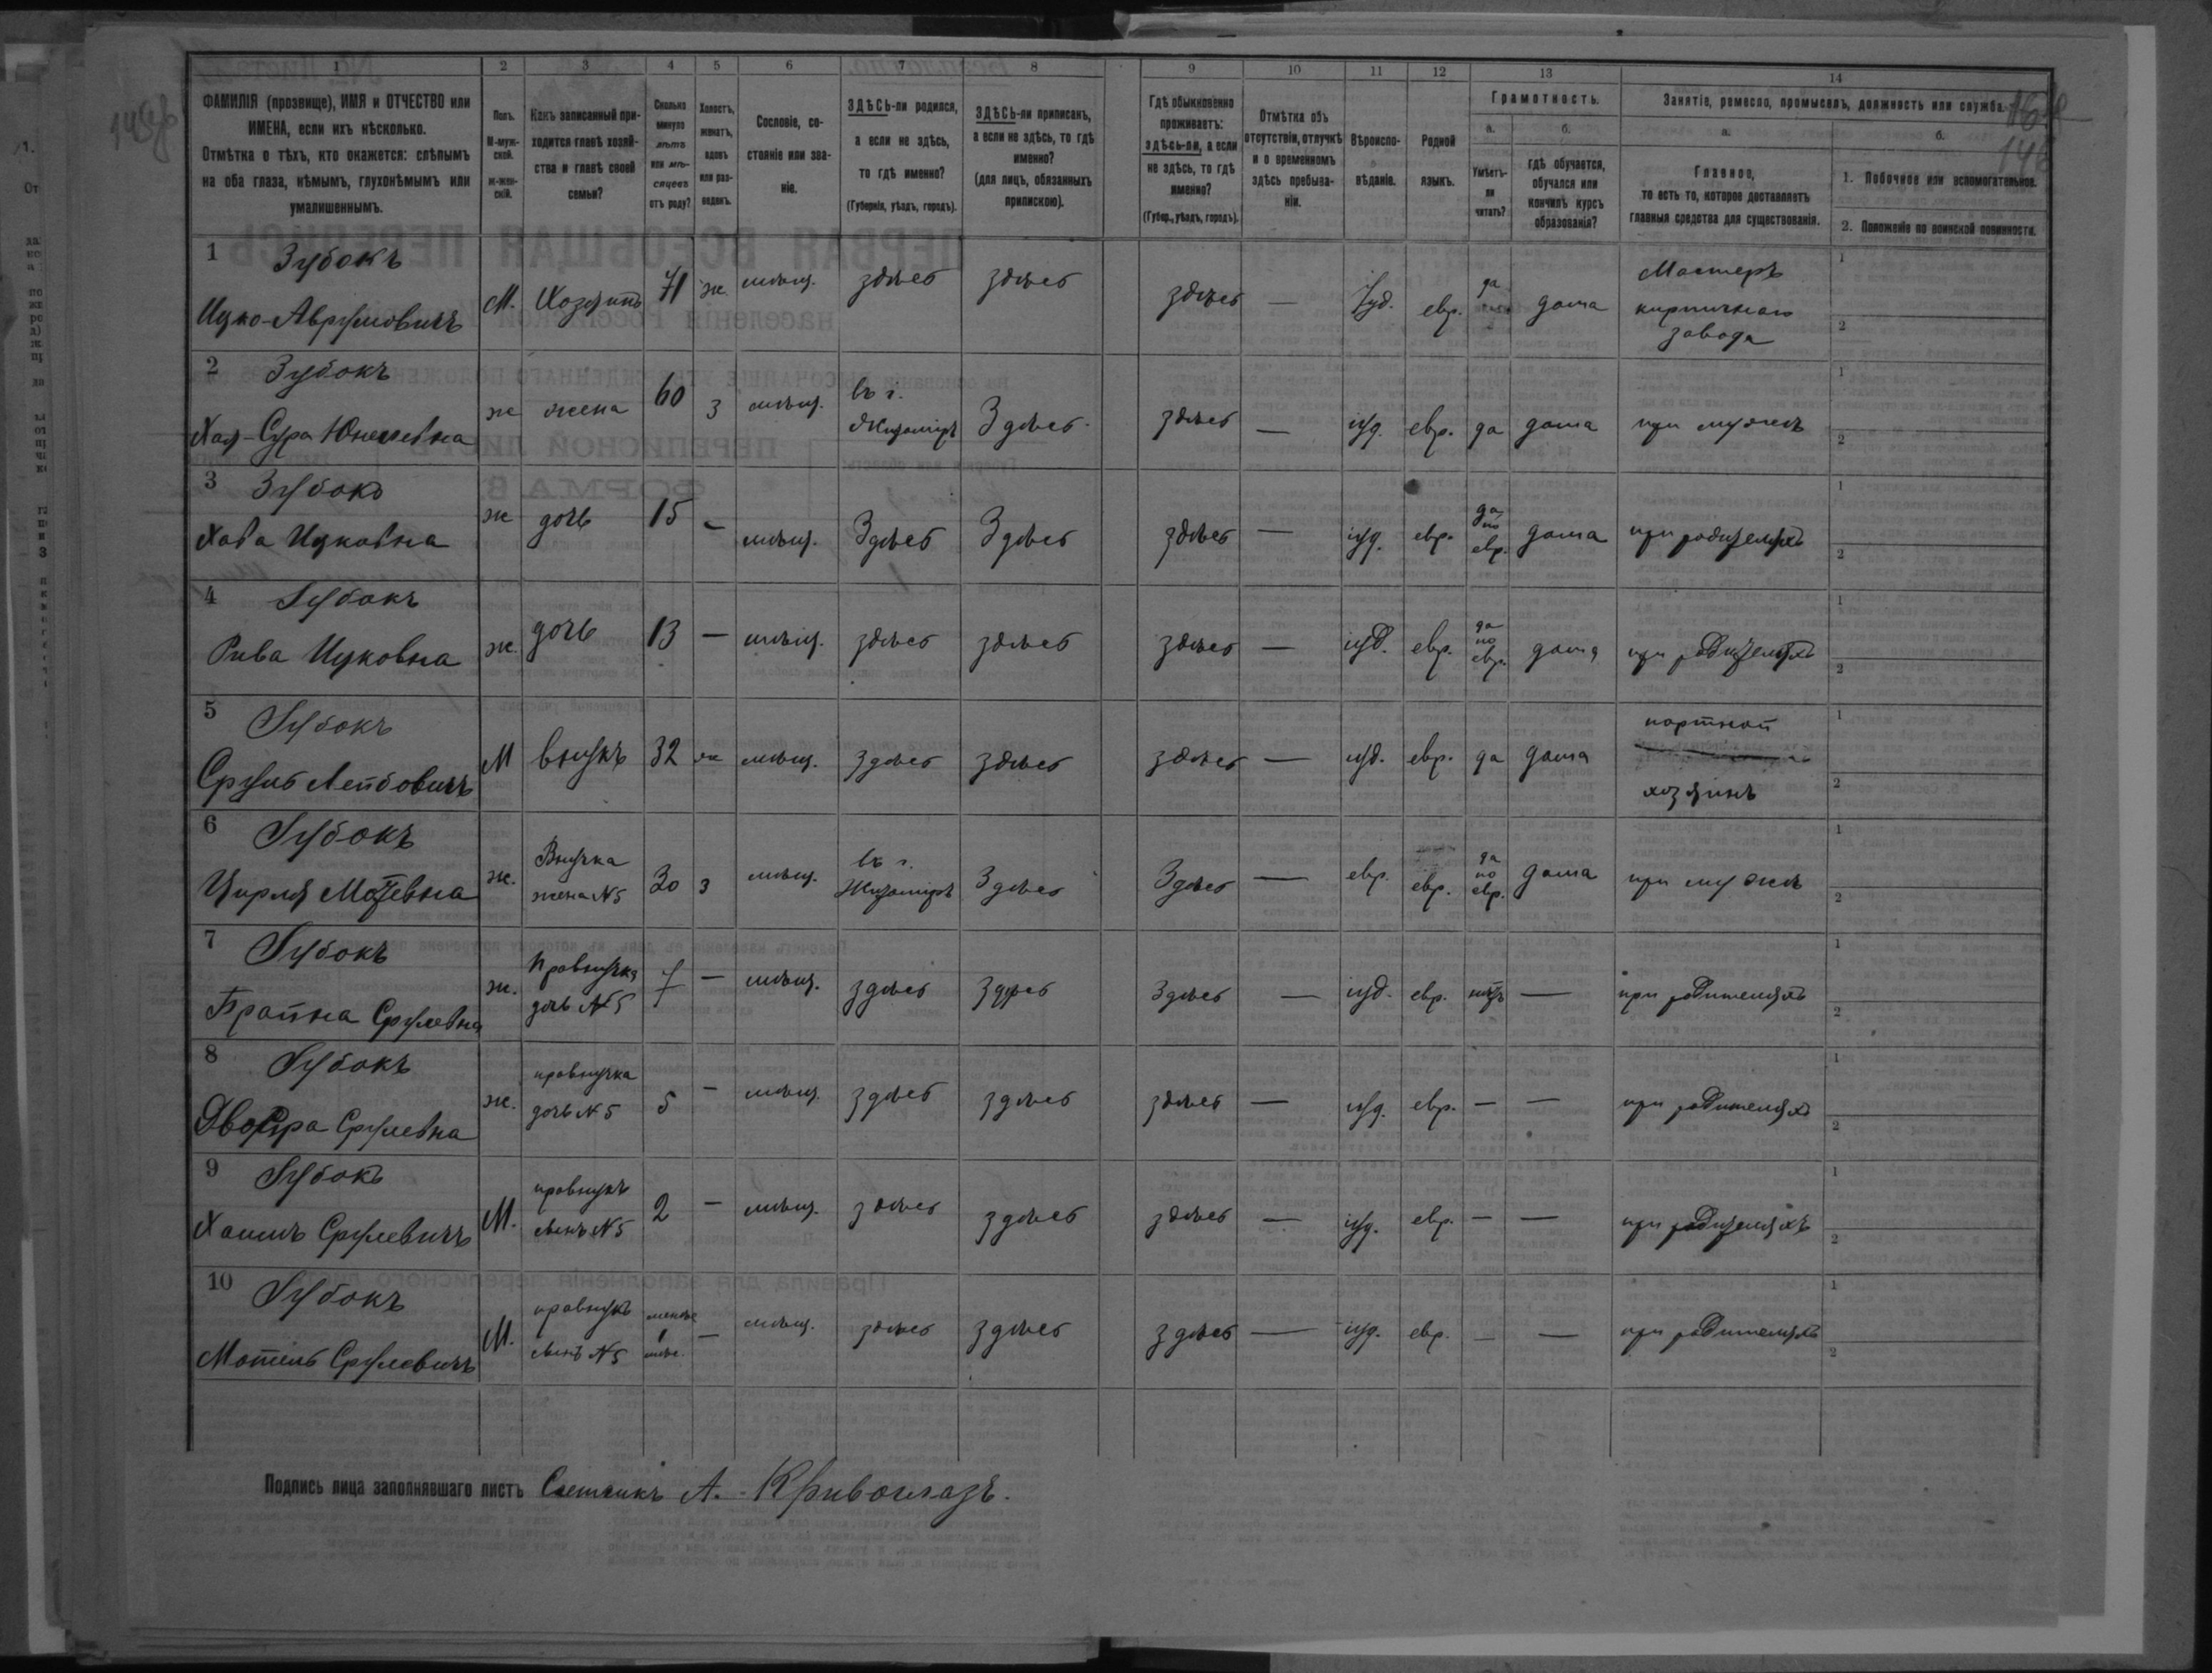 1 2 3 4 5 6 7 8 9 10 11 12 13 14
ФАМИЛІЯ (прозвище), ИМЯ и ОТЧЕСТВО или
ИМЕНА, если ихъ нѣсколько.
Отмѣтка о тѣхъ, кто окажется: слѣпымъ
на оба глаза, нѣмымъ, глухонѣмымъ или
умалишеннымъ.
Полъ.
М-муж-
ской.
Ж-жен-
скій.
Какъ записанный при-
ходится главѣ хозяй-
ства и главѣ своей
семьи?
Сколько
минуло
лѣтъ
или мѣ-
сяцевъ
отъ роду?
Холостъ,
женатъ,
вдовъ
или раз-
веденъ.
Сословіе, со-
стояніе или зва-
ніе.
ЗДѢСЬ-ли родился,
а если не здѣсь,
то гдѣ именно?
(Губернія, уѣздъ, городъ).
ЗДѢСЬ-ли приписанъ,
а если не здѣсь, то гдѣ
именно?
(для лицъ, обязанныхъ
припискою).
Гдѣ обыкновенно
проживаетъ:
здѣсь-ли, а если
не здѣсь, то гдѣ
именно?
(Губер., уѣздъ, городъ).
Отмѣтка объ
отсутствіи, отлучкѣ
и о временномъ
здѣсь пребыва-
ніи.
Вѣроиспо-
вѣданіе.
Родной
языкъ.
Грамотность.
а.
Умѣетъ-
ли
читать?
б.
гдѣ обучается,
обучался или
кончилъ курсъ
образованія?
Занятіе, ремесло, промыселъ, должность или служба.
а.
Главное,
то есть то, которое доставляетъ
главныя средства для существованія.
б.
1. Побочное или вспомогательное.
2. Положеніе по воинской повинности.
1 Зубокъ
Ицко-Аврумовичъ М. Хозяинъ 71 ж. мѣщ. здѣсь здѣсь здѣсь — Іуд. евр. да дома Мастеръ
кирпичнаго
завода
2 Зубокъ
Хая-Сура Юнелевна ж жена 60 з мѣщ. въ г.
Житомиръ Здѣсь здѣсь — іуд. евр. да дома при мужѣ
3 Зубокъ
Хава Ицковна ж дочь 15 – мѣщ. Здѣсь Здѣсь здѣсь — іуд. евр. да
по
евр. дома при родителяхъ
4 Зубокъ
Рива Ицковна ж. дочь 13 — мѣщ. здѣсь здѣсь здѣсь — іуд. евр. да
по
евр. дома при родителяхъ
5 Зубокъ
Сруль Лейбовичъ М внукъ 32 ж мѣщ. здѣсь здѣсь здѣсь — іуд. евр. да дома портной
хозяинъ
6 Зубокъ
Цирля Мотевна ж. Внучка
жена №5 30 з мѣщ. въ г.
Житомиръ Здѣсь Здѣсь — евр. евр. да
по
евр. дома при мужѣ
7 Зубокъ
Брайна Срулевна ж. Правнучка
дочь №5 7 — мѣщ. здѣсь здѣсь Здѣсь — іуд. евр. нѣтъ — при родителяхъ
8 Зубокъ
Двойра Срулевна ж. правнучка
дочь №5 5 – мѣщ. здѣсь здѣсь здѣсь — іуд. евр. — — при родителяхъ
9 Зубокъ
Хаимъ Срулевичъ М. правнукъ
сынъ №5 2 – мѣщ. здѣсь здѣсь здѣсь — іуд. евр. — — при родителяхъ
10 Зубокъ
Мотель Срулевичъ М. правнукъ
сынъ №5 менѣе
1
мѣс. — мѣщ. здѣсь здѣсь здѣсь — іуд. евр. — — при родителяхъ
Подпись лица заполнявшаго листъ Счетчикъ А. Кривоглазъ.